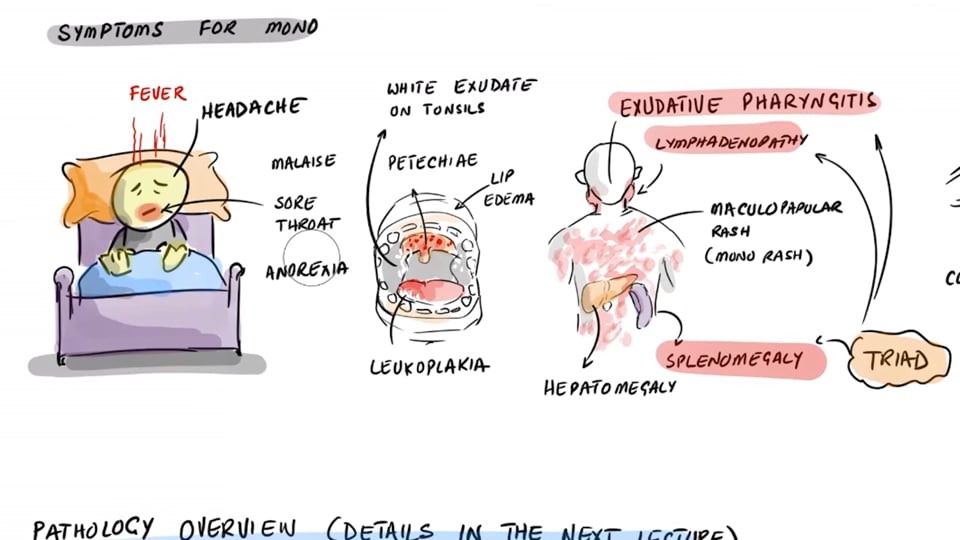 SYMPTOMS FOR MONO
FEVER
HEADACHE
MALAISE
SORE
THROAT
ANOREXIA
WHITE EXUDATE
ON TONSILS
PETECHIAE
LIP
EDEMA
LEUKOPLAKIA
EXUDATIVE PHARYNGITIS
LYMPHADENOPATHY
MACULOPAPULAR
RASH
(MONO RASH)
HEPATOMEGALY
SPLENOMEGALY
TRIAD
PATHOLOGY OVERVIEW (DETAILS IN THE NEXT LECTURE)